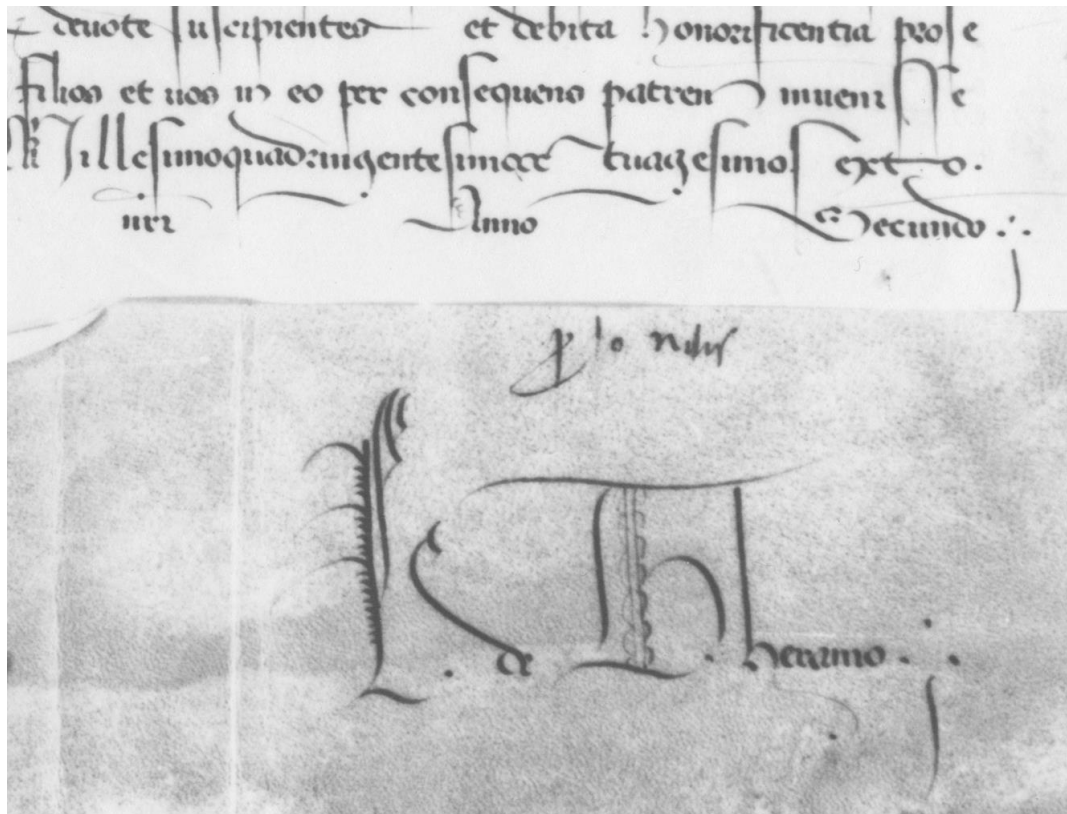 deuote suscipientes et debita honorificentia prose
filios et uos in eo per consequens patrem inuenisse
Millesimoquadringentesimo Sexto.
nri Anno Secundo
de Theramo.